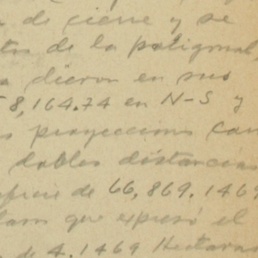 de cierre y se
de la poligonal,
dieron en sus
8,164.74 en N-S y
proyecciones con
dobles distancias
de 66,869.1469
que expresó el
de 4.1469 Hectareas